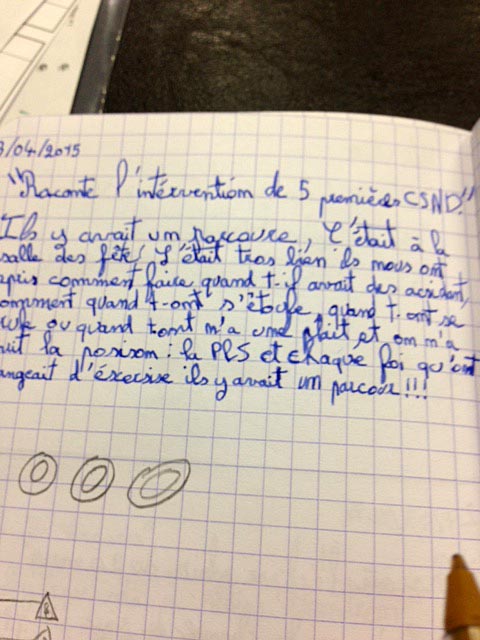 3/04/2015
"Raconte l'intérvention de 5 premières CSND."
Ils y avait um parcoure, C'était à la
salle des fête, C'était tros bien ils mous ont
apris comment faire quand t-il avait des acident,
omment quand t-ont s'étoufe, quand t-ont se
ule ou quand tomt m'a ume plait et om m'a
uit la posisom : la PLS et chaque foi qu'ont
angeait d'éxercise ils y avait um parcour !!!